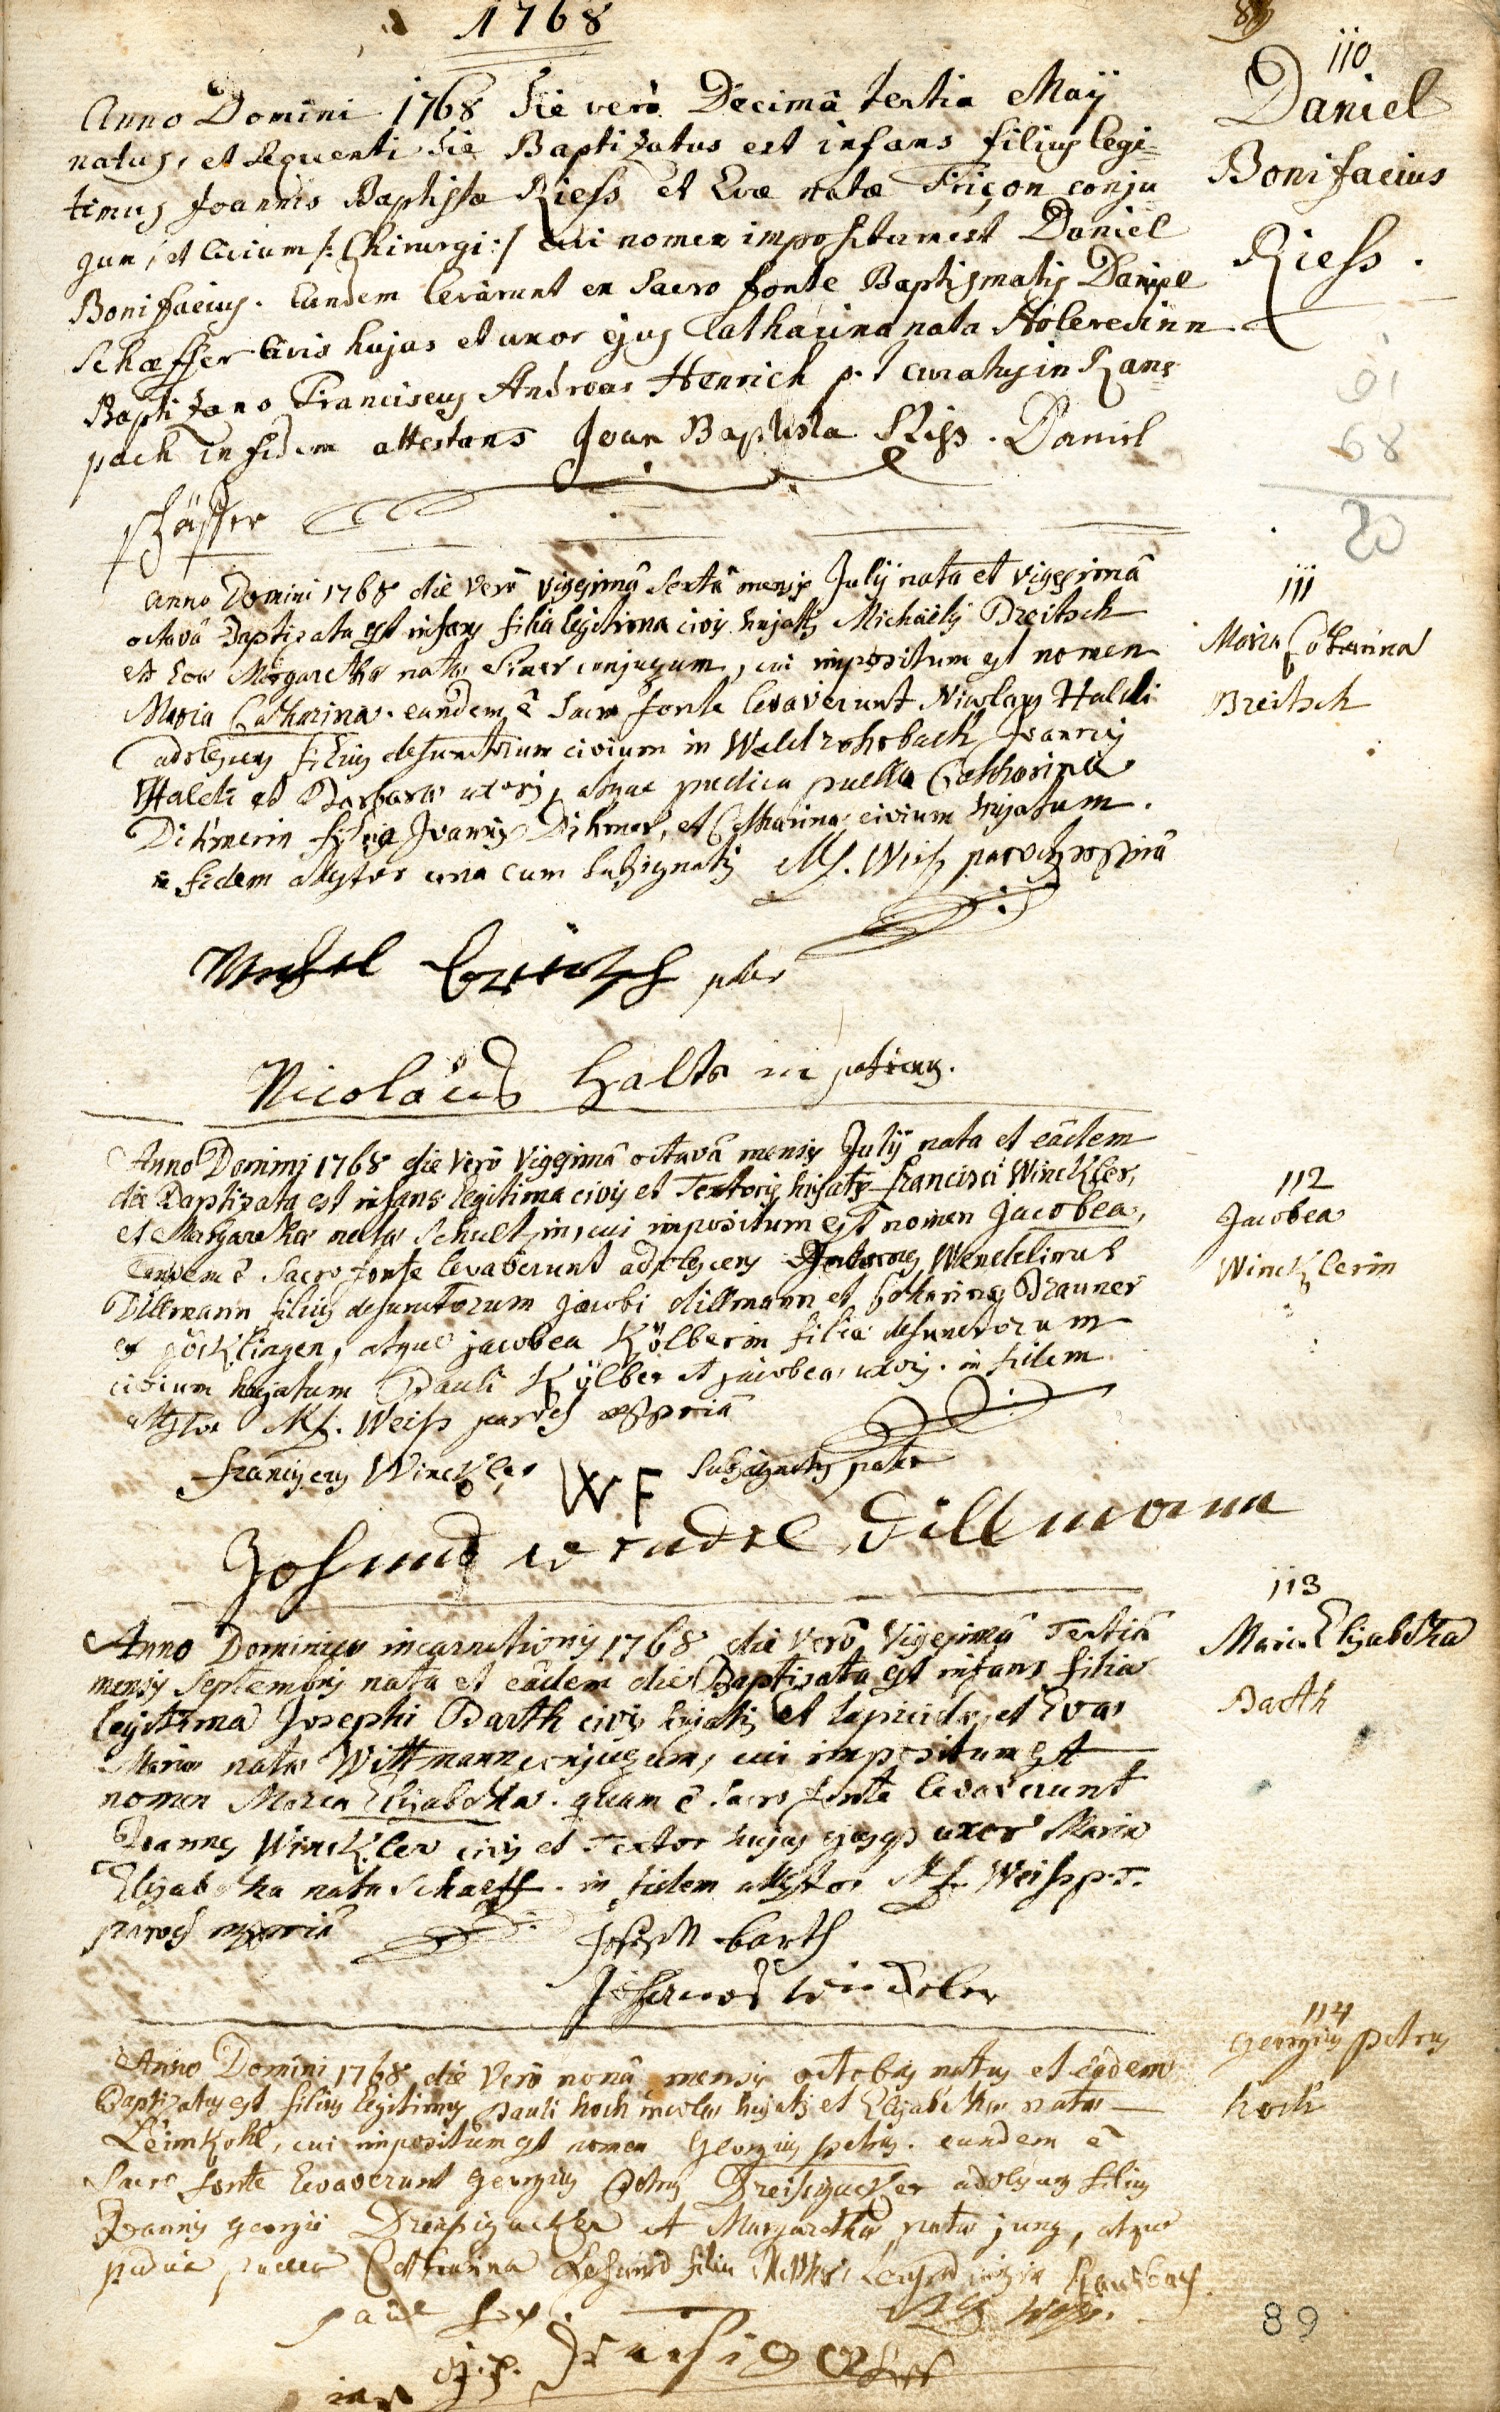 1768
89
110
Daniel
Bonifacius
Riess.
Anno Domini 1768 die verò Decimâ tertia Maÿ
natus, et sequenti die Baptizatus est infans filius legi=
timus Joannis Baptistæ Riess et Evæ natæ Friçon conju
gum, et civium /: Chirurgi :/ cui nomen impositum est Daniel
Bonifacius. Eundem levârunt ex Sacro fonte Baptismatis Daniel
Schæffer civis hujas et uxor ejus Catharina nata
Baptizavo Franciscus Andreas Henrich p. t curatus in Rans
pach in fidem attestans Joan Baptista Riss. Daniel
schäffer
91
68
23
111
Maria Catharina
Breitsch
Anno Domini 1768 die verò vigesimâ sextâ mensis Julÿ nata et vigesimâ
octavâ Baptizata est infans filia legitima civis hujatis Michaëlis Breitsch
et Eva Margaretha nata conjugum, cui impositum est nomen
Maria Catharina. eandem è Sacro fonte levaverunt Nicolaus Haldi
adolescens filius defunctorum civium in Waldrohrbach Joannis
Haldi et Barbara uxoris, atque pudica puella Catharina
Dihmerin filia Joannis Dihmer, et Catharina civium hujatum.
in fidem attestor una cum subsignatis M. Weiss parochus mppriâ
Michel breitsch pater
Nicolaus halts patrinus.
112
Jacobea
Wincklerin
Anno Domini 1768 die verò vigesimâ octavâ mensis Julÿ nata et eâdem
die Baptizata est infans legitima civis et Textoris hujatis Francisci Winckler,
et Margaretha nata Schultz, cui impositum est nomen Jacobea,
Eandem è Sacro fonte levaverunt adolescens Wendelinus
Dillmann filius defunctorum Jacobi dillmann et Catharina Brauner
ex göcklingen, atque jacobea Kÿlberin filia defunctorum
civium hujatum Pauli Kÿlber et jacobea uxoris. in fidem
attestor M. Weiss paroch mppriâ
Franciscus Winckler WF Subsignatus pater
Johannes wendel Dillmann
113
Maria Elisabetha
Barth
Anno Dominica incarnationis 1768 die verò vigesimâ Tertiâ
mensis Septembris nata et eâdem die Baptizata est infans filia
legitima Josephi Barth civis hujatis et lapicida, et Eva
Maria nata Wittmann conjugum, cui impositum est
nomen Maria Elisabetha. quam è Sacro fonte levaverunt
Joannes Winckler civis et Textor hujas ejusque uxor Maria
Elisabetha nata Scharff. in fidem attestor M. Weiss p.T.
paroch mppriâ
Joseph barth
Johannes winckler
114
Georgius petrus
Koch
Anno Domini 1768 die verò nonâ mensis octobris natus et eôdem
Baptizatus est filius legitimus Pauli Koch incola hujatis et Elisabetha nata
Leimkohl, cui impositum est nomen Georgius petrus. eundem è
Sacro fonte levaverunt Georgius Petrus Dreisigacker adolescens filius
Joannis Georgii Dreissigacker et Margaretha nata jung, atque
pudica puella Catharina filia
M. Weiss.
89